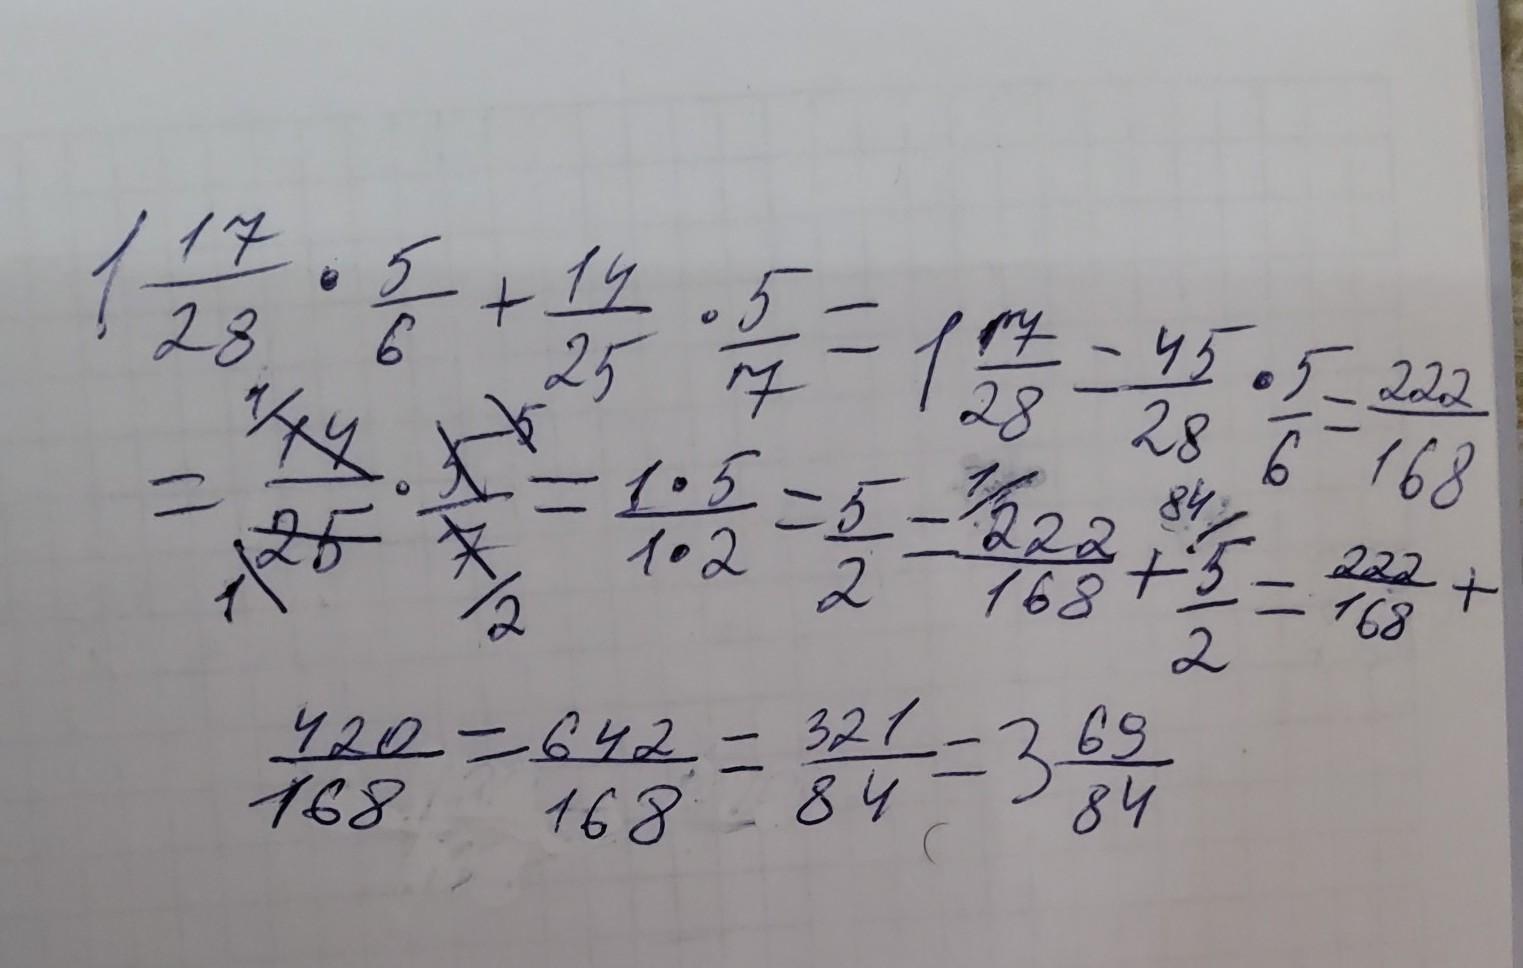 1 17/28 · 5/6 + 14/25 · 5/7 = 1 17/28 = 45/28 · 5/6 = 222/168
= 14/25 · 5/7 = 1·5/1·2 = 5/2 = 222/168 + 5/2 = 222/168 +
420/168 = 642/168 = 321/84 = 3 69/84